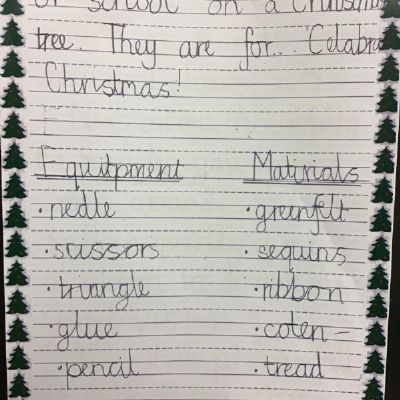 or school on a Christmas
tree. They are for... Celabra
Christmas!
Equitpment Matirials
· nedle · greenfelt
· scissors · sequins
· triangle · ribbon
· glue · coten -
· pencil · tread